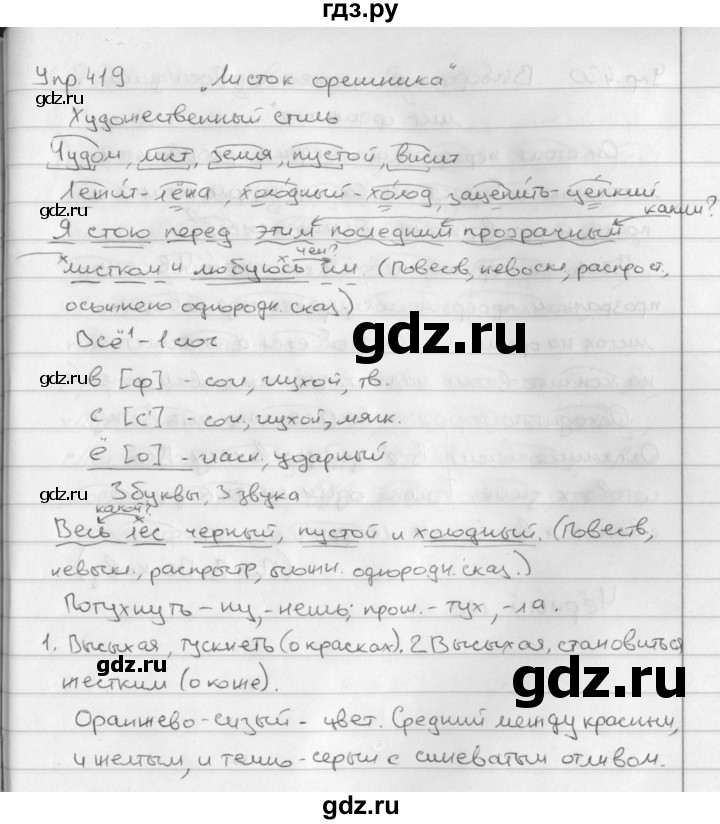 гдз.ру
Упр.419 "Листок орешника"
gdz.ru
Художественный стиль
Чудом, лист, земля, пустой, висит
gdz.ru
Лежит-лёжа, холодный-холод, зацепить-цепкий
каким?
Я стою перед этим последним прозрачным
чем?
листком и любуюсь им. (Повеств, невоскл, распрост,
осложнено однородн. сказ.)
gdz.ru
Всё - 1 слог
gdz.ru
в [ф] - согл, глухой, тв.
с [с'] - согл, глухой, мягк.
ё [о] - гласн, ударный
gdz.ru
3 буквы, 3 звука
какой?
Весь лес черный, пустой и холодный. (Повеств,
невыкл., распростр, ослжн. однородн. сказ.)
Потухнуть - ну, -нешь; прош. - тух, -ла.
1. Высыхая, тускнеть (о красках). 2 Высыхая, становиться
gdz.ru
жестким (о коже).
gdz.ru
Оранжево-сизый - цвет. Средний между красным,
и желтым, и темно-серым с синеватым отливом.
gdz.ru
gdz.ru